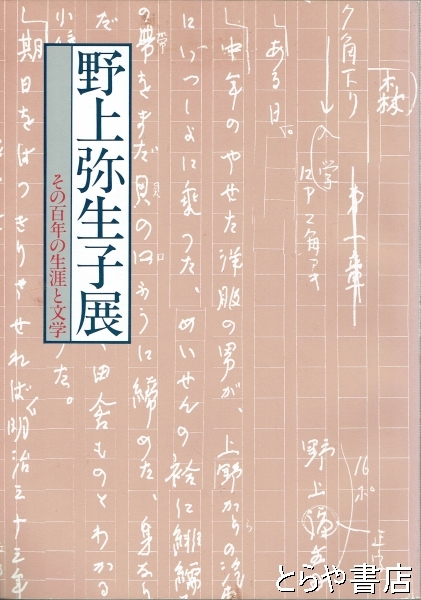 野上弥生子展
その百年の生涯と文学
森
第一章
野上
16ポ
正
ある日
中年のやせた洋服の男が、上野からの汽車
にいつしよに乗つた、めいせんの袷に緋繻
の帯をまだ貝の口ふうに締めた、身なら
だ
田舎ものとわかる
つた。
期日をはつきりさせれば明治三十三年
とらや書店